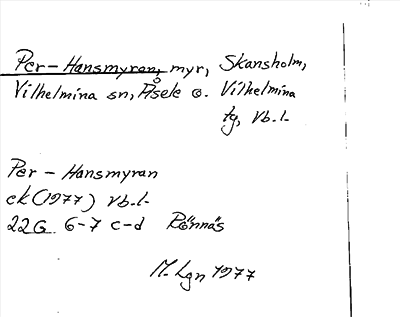 Per-Hansmyran, myr, Skansholm,
Vilhelmina sn, Åsele o. Vilhelmina
tg, Vb.l.
Per - Hansmyran
ek (1977) Vb.l.
22G 6-7 c-d Rönnäs
M. Lgn 1977